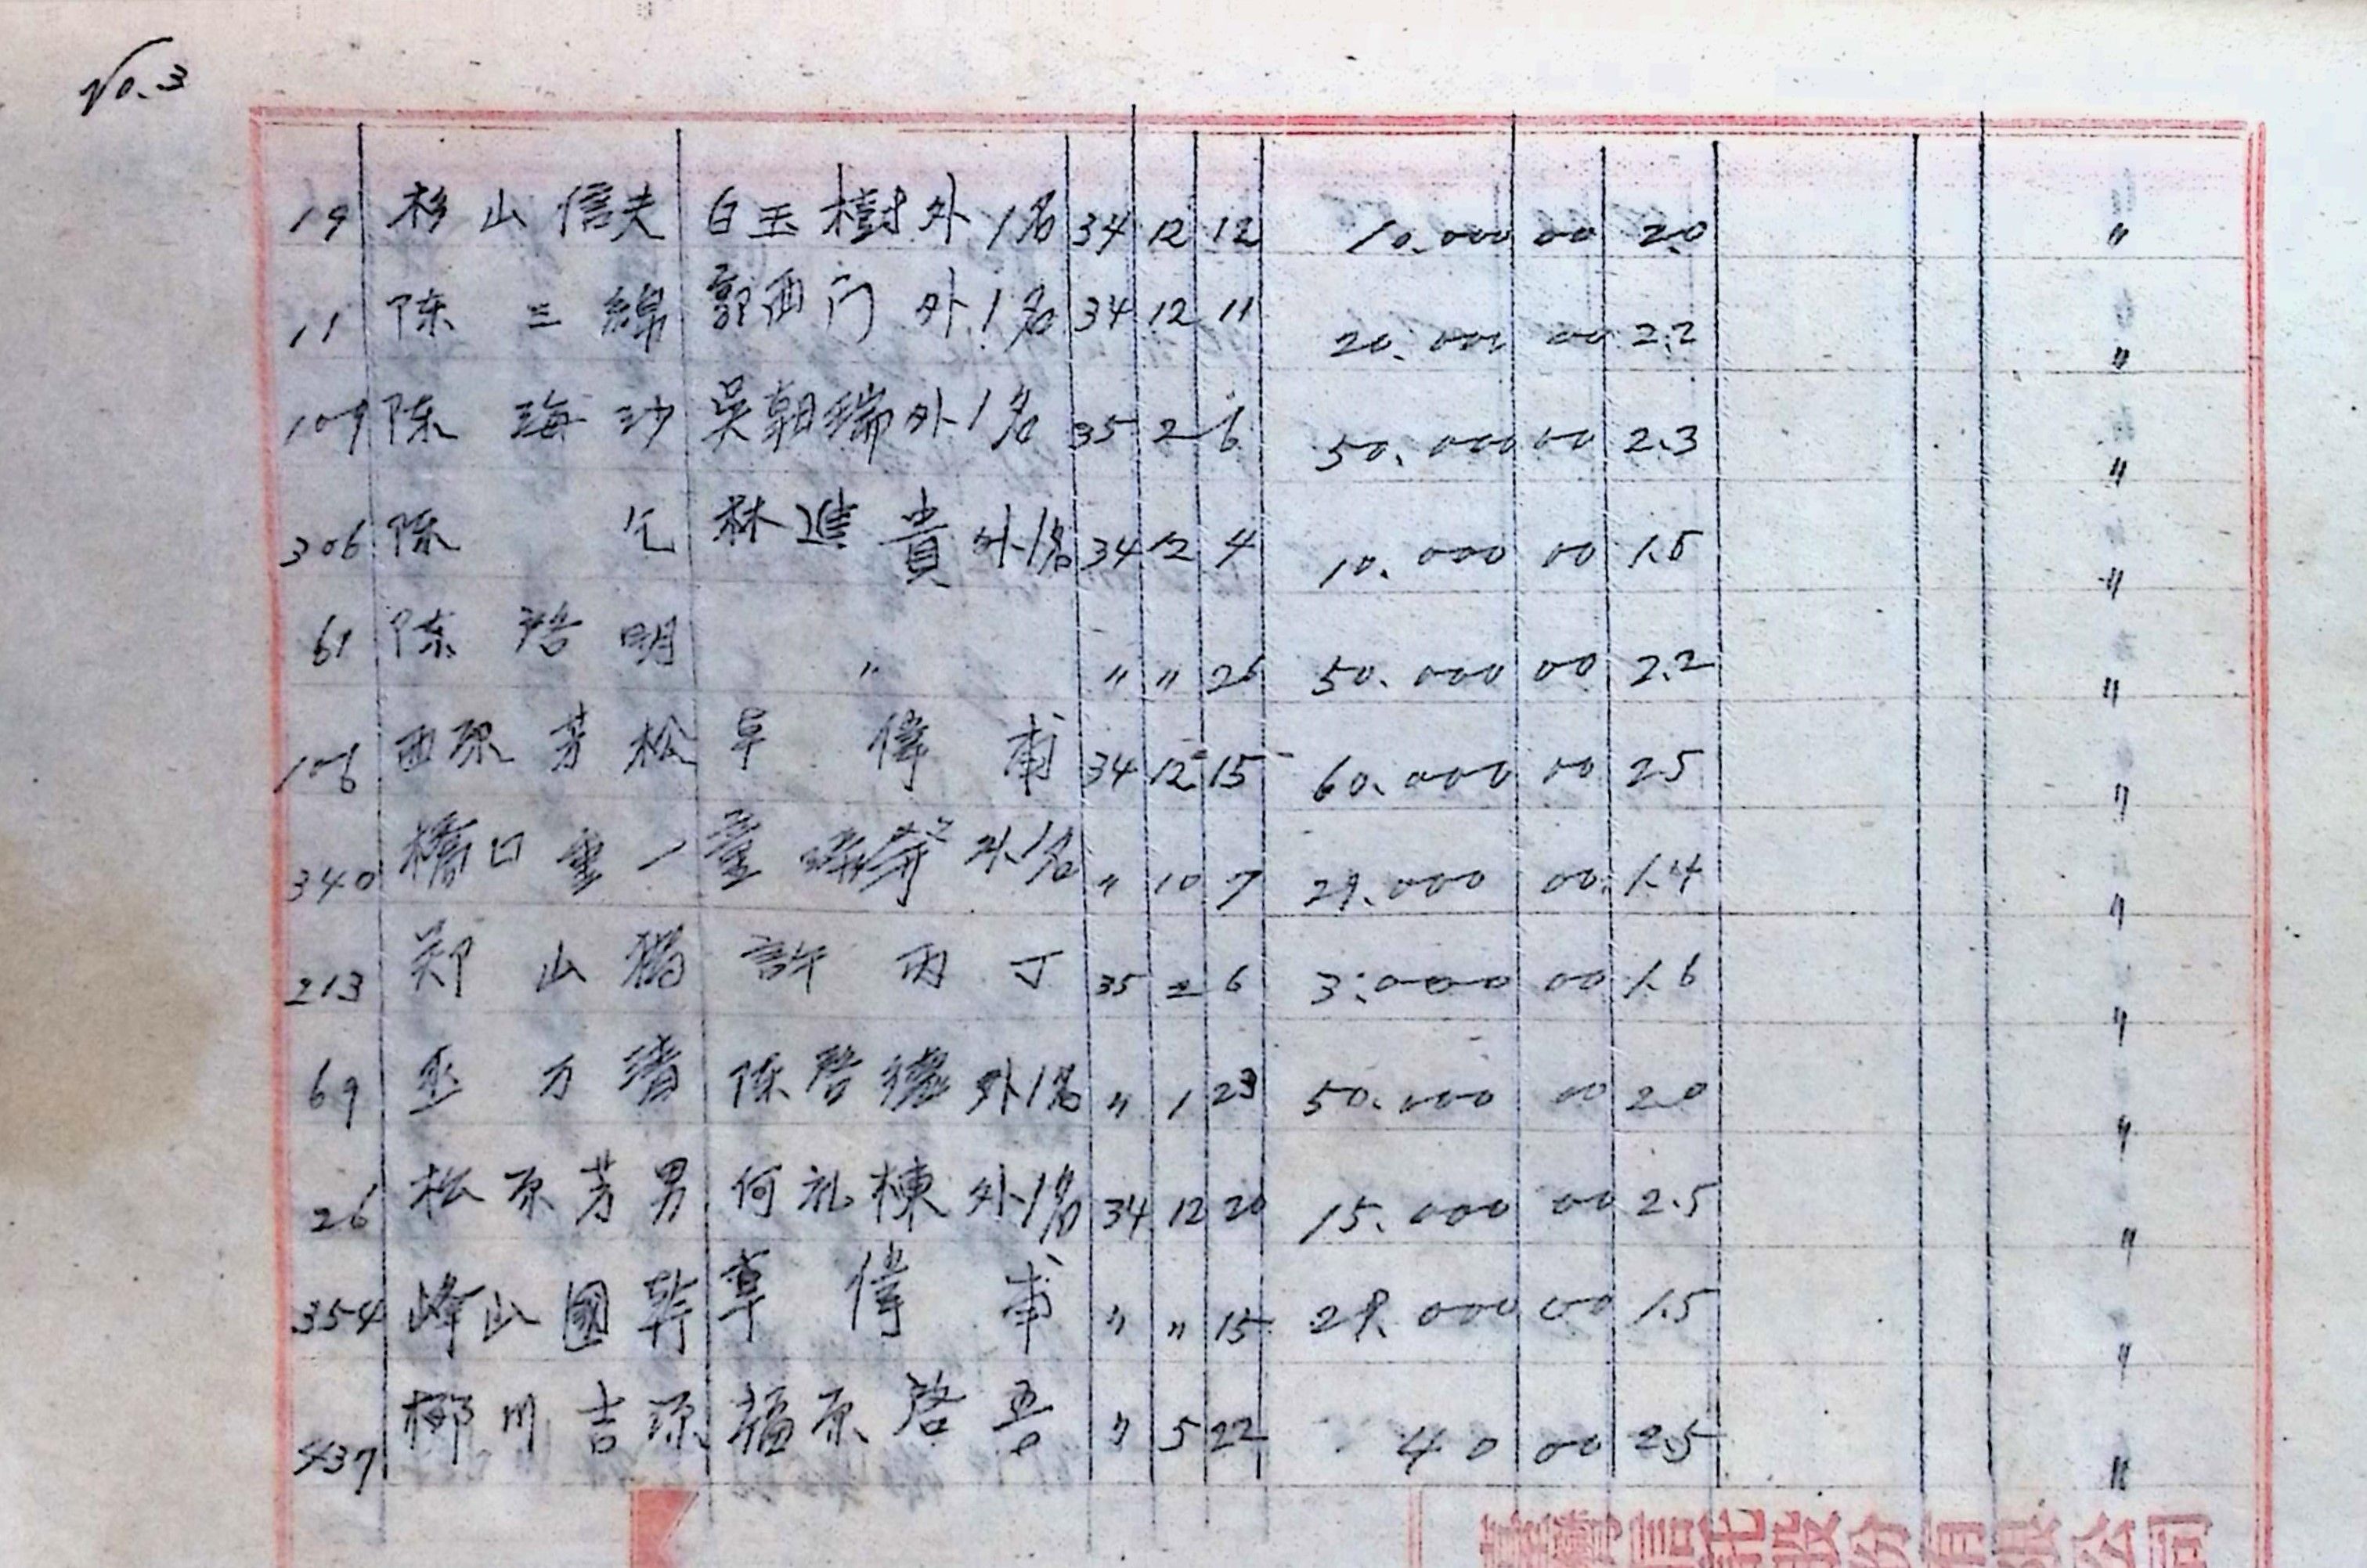 No.3
19 杉山信夫 白玉樹外1名 34 12 12 10.000 00 2.0 〃
11 陈三綿 郭西门外1名 34 12 11 20.000 00 2.2 〃
109 陈海沙 吳朝瑞外1名 35 2 6 50.000 00 2.3 〃
306 陈 林進貴外1名 34 12 4 10.000 00 1.5 〃
61 陈浩明 〃 〃 〃 26 50.000 00 2.2 〃
106 西原芳松 偉甫 34 12 15 60.000 00 25 〃
340 橋口重一 外1名 〃 10 7 29.000 00 1.4 〃
213 郑山 許丙丁 35 2 6 3.000 00 1.6 〃
69 巫万 陈啓 外1名 〃 1 23 50.000 00 2.0 〃
26 松原芳男 何礼棟外1名 34 12 20 15.000 00 2.5 〃
354 峰山國幹 偉甫 〃 〃 15 29.000 00 1.5 〃
437 柳川吉源 福原啓吾 〃 5 22 40 00 2.5 〃
臺灣信託股份有限公司